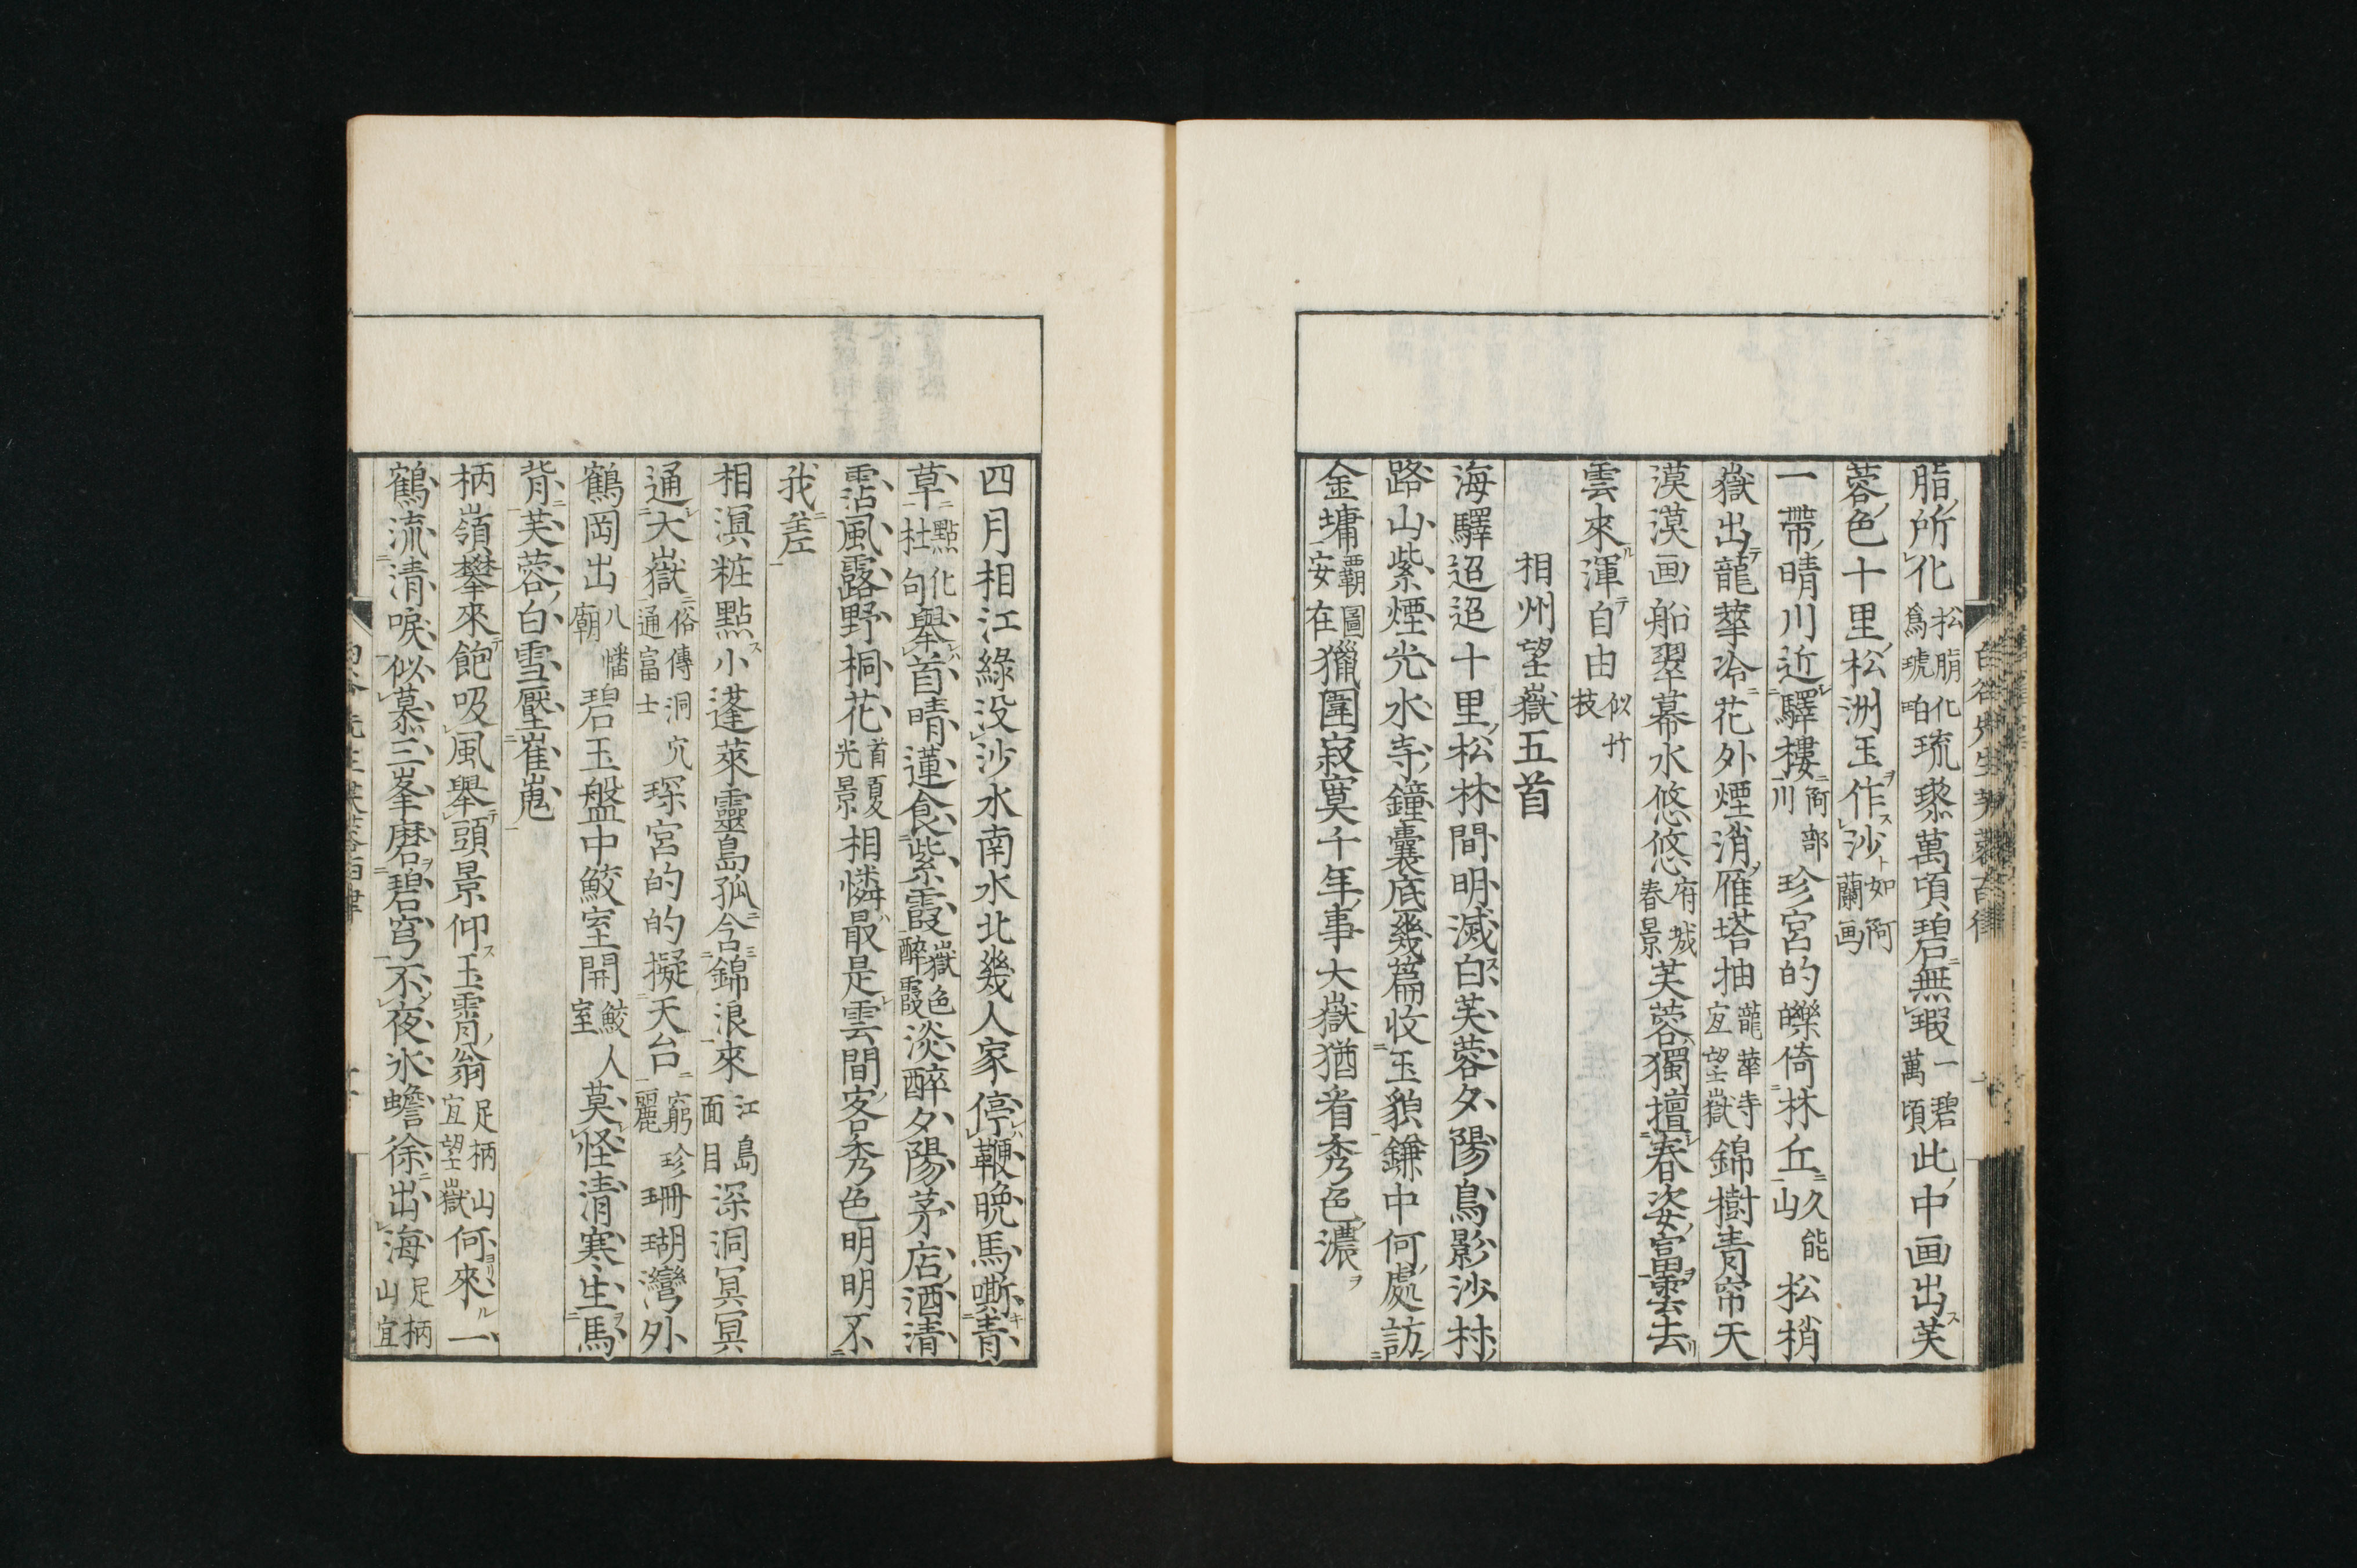 脂所化松脂化爲琥珀琉瓈萬頃碧無瑕一碧萬頃此中画出芙
蓉色十里松洲玉作沙如阿蘭画
一帶晴川近驛樓阿部川珍宮的皪倚林丘久能山松梢
嶽出龍華冷花外煙消雁塔抽龍華寺宜望嶽錦樹青帘天
漠漠画船翠幕水悠悠府城春景芙蓉獨擅春姿富雲去
雲來渾自由似竹枝
相州望嶽五首
海驛迢迢十里松林間明滅白芙蓉夕陽鳥影沙村
路山紫煙光水寺鐘囊底幾篇收玉貌鎌中何處訪
金墉覇圖安在獵圍寂寞千年事大嶽猶看秀色濃
四月相江綠没沙水南水北幾人家停鞭晩馬嘶青
草點化杜句擧首晴蓮食紫霞嶽色醉霞淡醉夕陽茅店酒清
霑風露野桐花首夏光景相憐最是雲間客秀色明明不
我差
相溟粧點小蓬萊靈島孤含錦浪來江島面目深洞冥冥
通大嶽俗傳洞穴通富士琛宮的的擬天台窮珍麗珊瑚灣外
鶴岡出八幡廟碧玉盤中鮫室開鮫人室莫怪清寒生馬
背芙蓉白雪壓崔嵬
柄嶺攀來飽吸風擧頭景仰玉霄翁足柄山宜望嶽何來一
鶴流清唳似慕三峯磨碧穹不夜氷蟾徐出海足柄山宜